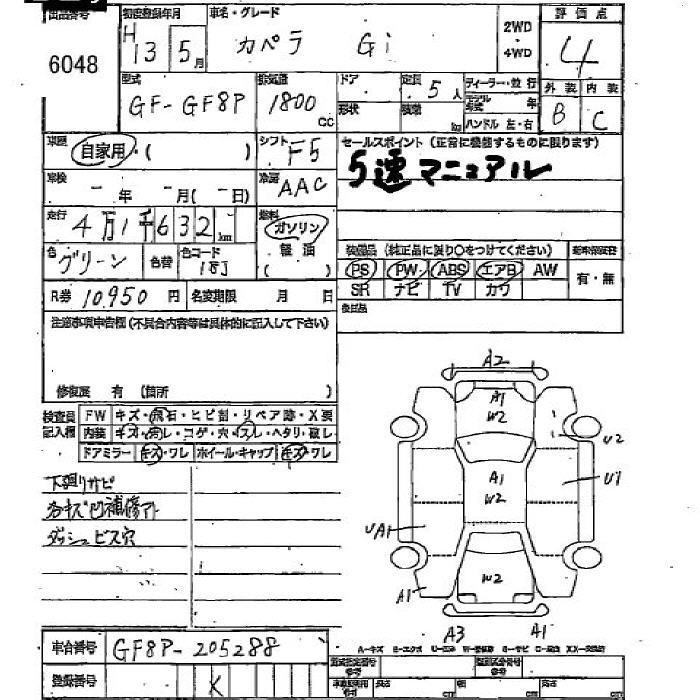 出品番号 初度登録年月 車名・グレード 評価点
6048 H 13 5月 カペラ Gi 2WD 4WD 4
型式 排気量 ドア 定員 ディーラー・並行 外装 内装
GF-GF8P 1800 CC 形状 積載 5人 モデル年式 年 B C
kg ハンドル 左・右
車歴 自家用・( ) シフト F5 セールスポイント (正常に機能するものに限ります)
車検 - 年 - 月( - 日) 冷房 AAC 5速マニュアル
走行 4万1千632km 燃料 ガソリン
軽油
( )
色 グリーン 色替 色コード 18J
装備品 (純正品に限り○をつけてください)
PS PW ABS エアB AW 有・無
SR ナビ TV カワ
R券 10,950円 名変期限 月 日
後日品
注意事項申告欄 (不具合内容等は具体的に記入して下さい)
修復歴 有 (箇所 )
検査員記入欄
FW キズ・飛石・ヒビ割・リペア跡・X要
内装 キズ・汚レ・コゲ・穴・スレ・ヘタリ・破レ
ドアミラー キズ・ワレ ホイール・キャップ キズ・ワレ
下廻りサビ
各キズ凹補修アト
ダッシュビス穴
A2
A1
W2
U2
A1
W2
U1
UA1
W2
A1
A3 A1
車台番号 GF8P-205288
A-キズ E-エクボ U-凹み W-補修跡 S-サビ C-腐食 XX-交換済
登録番号 K
型式指定番号 類別区分番号
車輌採用参考 長さ cm 幅 cm 高さ cm